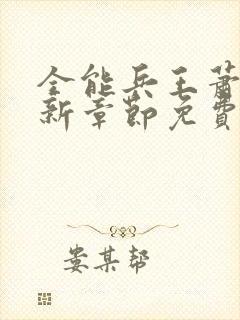 全能兵王萧
新章節免費
娄某帮